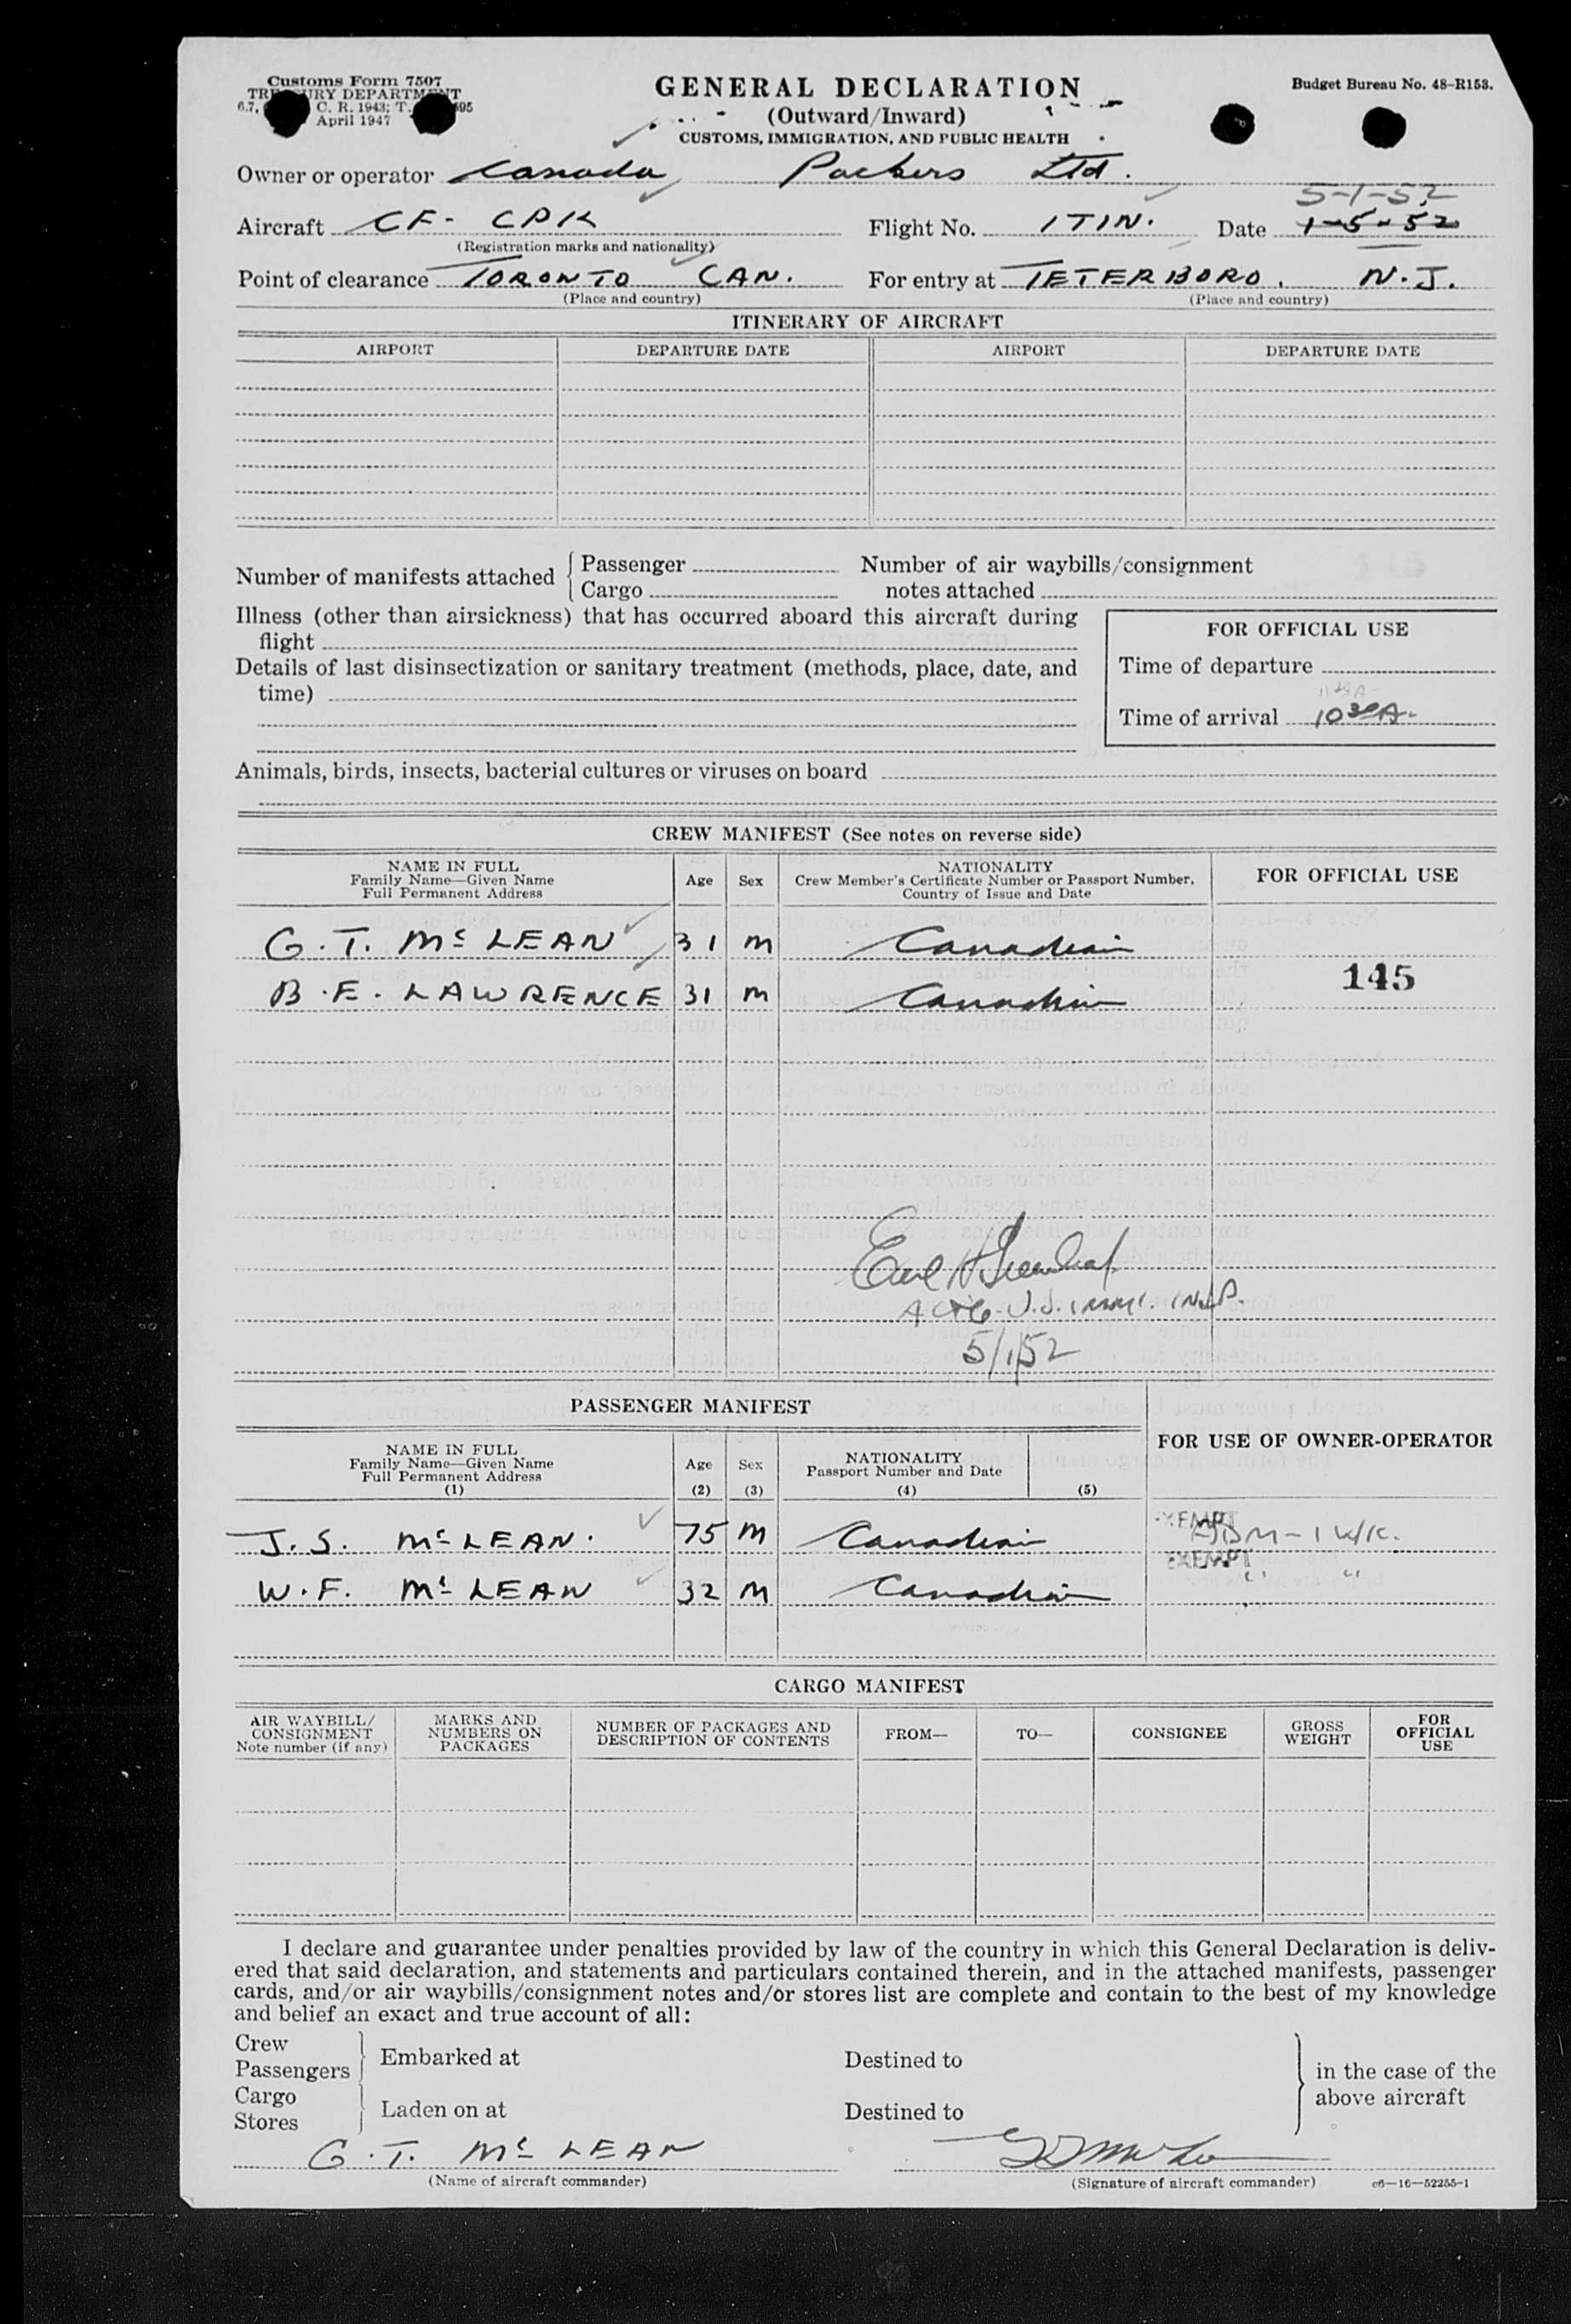 Customs Form 7507
TREASURY DEPARTMENT
6.7, C. R. 1943; T. 595
April 1947
GENERAL DECLARATION
(Outward/Inward)
CUSTOMS, IMMIGRATION, AND PUBLIC HEALTH
Budget Bureau No. 48-R153.
Owner or operator Canada Packers Ltd.
5-1-52
Aircraft CF- CPK Flight No. ITIN. Date 1-5-52
(Registration marks and nationality)
Point of clearance TORONTO CAN. For entry at TETERBORO, N.J.
(Place and country) (Place and country)
ITINERARY OF AIRCRAFT
AIRPORT DEPARTURE DATE AIRPORT DEPARTURE DATE
Number of manifests attached { Passenger
Cargo
Number of air waybills/consignment
notes attached
Illness (other than airsickness) that has occurred aboard this aircraft during
flight
Details of last disinsectization or sanitary treatment (methods, place, date, and
time)
FOR OFFICIAL USE
Time of departure
Time of arrival 10 30 A.
Animals, birds, insects, bacterial cultures or viruses on board
CREW MANIFEST (See notes on reverse side)
NAME IN FULL
Family Name—Given Name
Full Permanent Address
Age Sex
NATIONALITY
Crew Member's Certificate Number or Passport Number,
Country of Issue and Date
FOR OFFICIAL USE
G. T. McLEAN 31 M Canadian
145
B. E. LAWRENCE 31 M Canadian
ACTG. U.S. IMMI. INSP.
5/1/52
PASSENGER MANIFEST
FOR USE OF OWNER-OPERATOR
NAME IN FULL
Family Name—Given Name
Full Permanent Address
(1)
Age
(2)
Sex
(3)
NATIONALITY
Passport Number and Date
(4) (5)
J. S. McLEAN. 75 M Canadian EXEMPT 1 WK.
W. F. McLEAN 32 M Canadian EXEMPT " "
CARGO MANIFEST
AIR WAYBILL/
CONSIGNMENT
Note number (if any)
MARKS AND
NUMBERS ON
PACKAGES
NUMBER OF PACKAGES AND
DESCRIPTION OF CONTENTS
FROM— TO— CONSIGNEE
GROSS
WEIGHT
FOR
OFFICIAL
USE
I declare and guarantee under penalties provided by law of the country in which this General Declaration is deliv-
ered that said declaration, and statements and particulars contained therein, and in the attached manifests, passenger
cards, and/or air waybills/consignment notes and/or stores list are complete and contain to the best of my knowledge
and belief an exact and true account of all:
Crew
Passengers
Embarked at Destined to
Cargo
Stores
Laden on at Destined to
in the case of the
above aircraft
G. T. McLEAN
(Name of aircraft commander) (Signature of aircraft commander) c6—16—52255-1